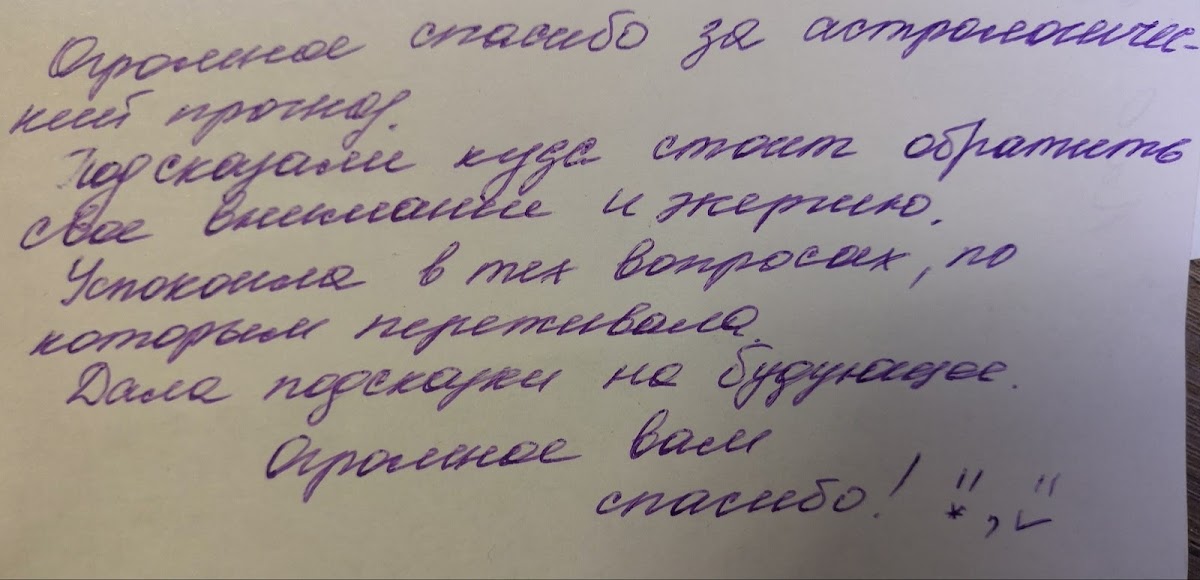 Огромное спасибо за астрологичес-
кий прогноз.
Подсказали куда стоит обратить
свое внимание и энергию.
Успокоила в тех вопросах, по
которым переживала.
Дала подсказки на будующее.
Огромное вам
спасибо!